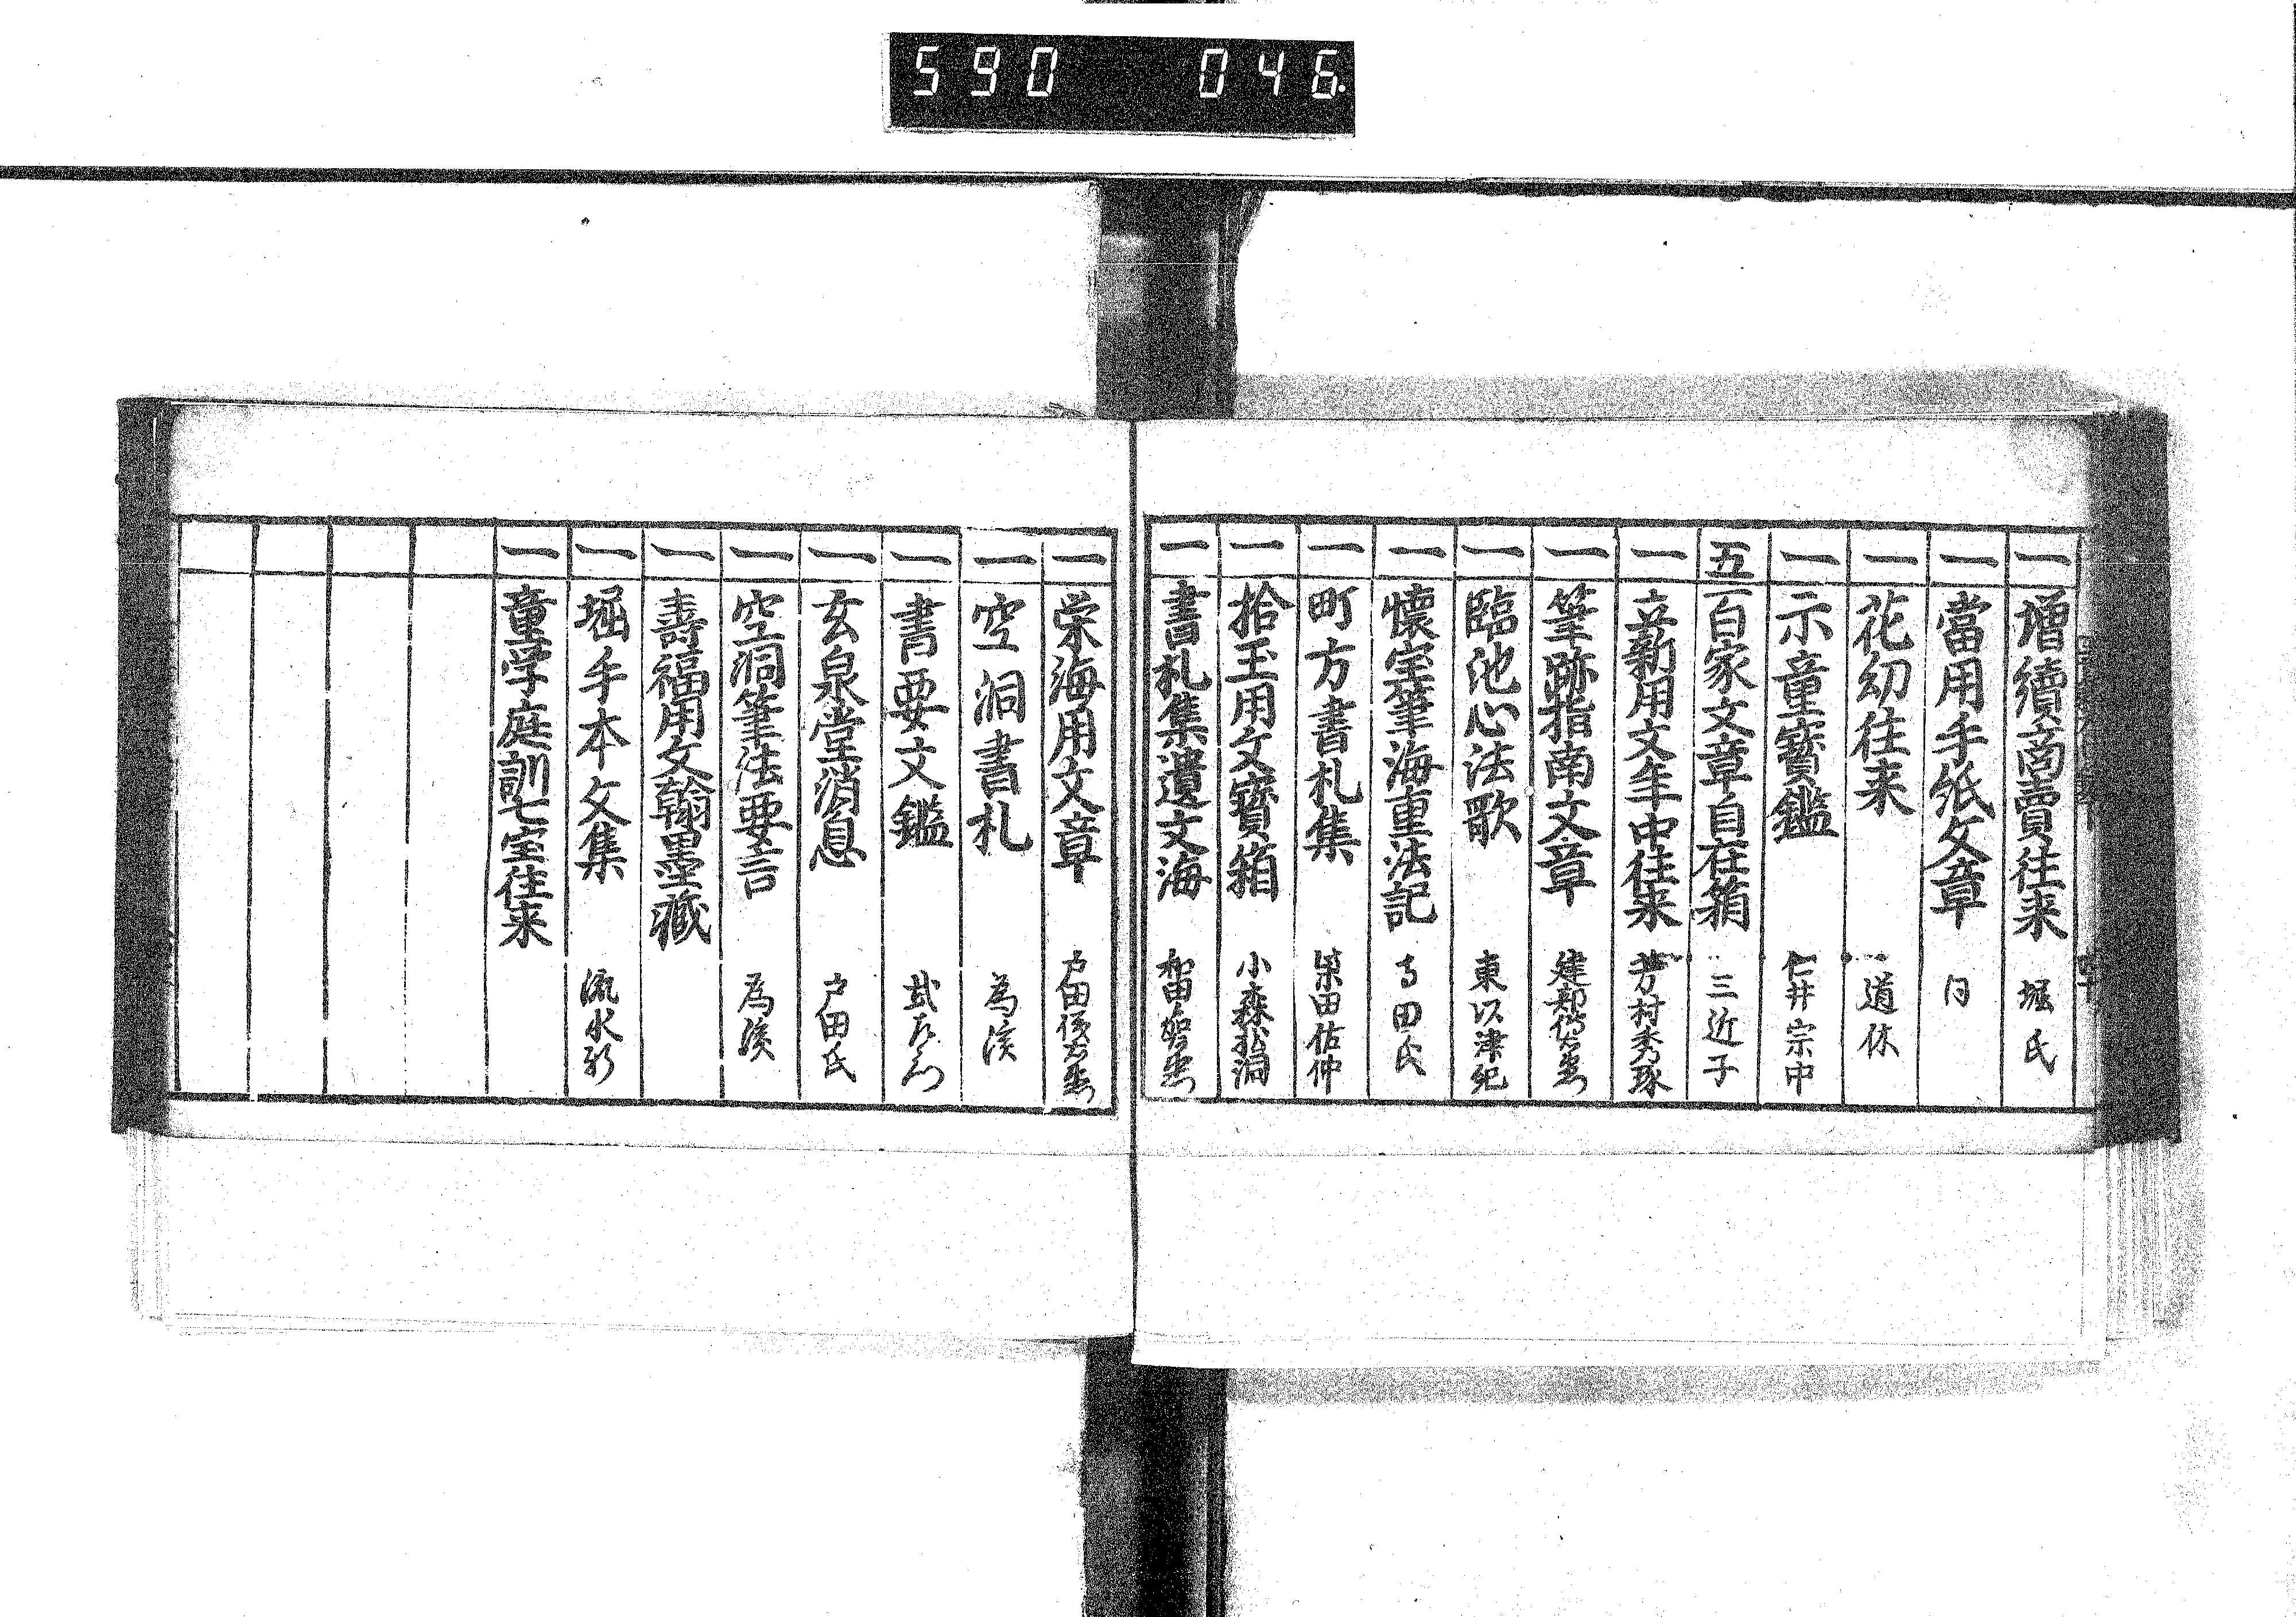 590 046
一 増續商賣往来 堀氏
一 當用手紙文章 同
一 花幼往来 道休
一 示童寳鑑 仁井宗中
五 百家文章自在箱 三近子
一 立新用文年中往来 芳村秀琢
一 筆跡指南文章
一 臨池心法歌 東以津紀
一 懐宝筆海重法記 寺田氏
一 町方書札集 梁田佑仲
一 拾玉用文寳箱
一 書札集遺文海
一 栄海用文章
一 空洞書札 為溪
一 書要文鑑
一 玄泉堂消息 戸田氏
一 空洞筆法要言 為溪
一 壽福用文翰墨藏
一 堀手本文集 流水軒
一 童学庭訓七宝往来